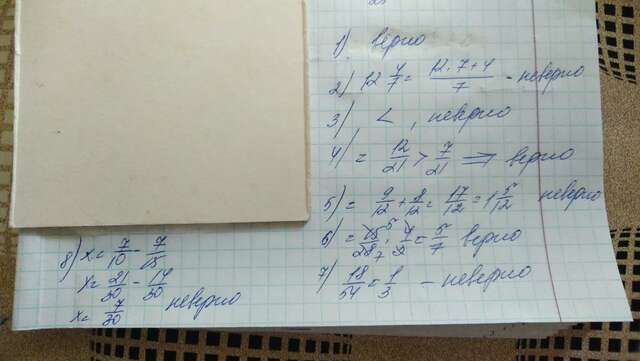 1) верно
2) 12 4/7 = (12·7+4)/7 - неверно
3) < , неверно
4) = 12/21 > 7/21 ⇒ верно
5) = 9/12 + 8/12 = 17/12 = 1 5/12 неверно
7) 18/54 = 1/3 - неверно
8) x = 7/10 - 7/15
x = 21/30 - 14/30
x = 7/30 неверно